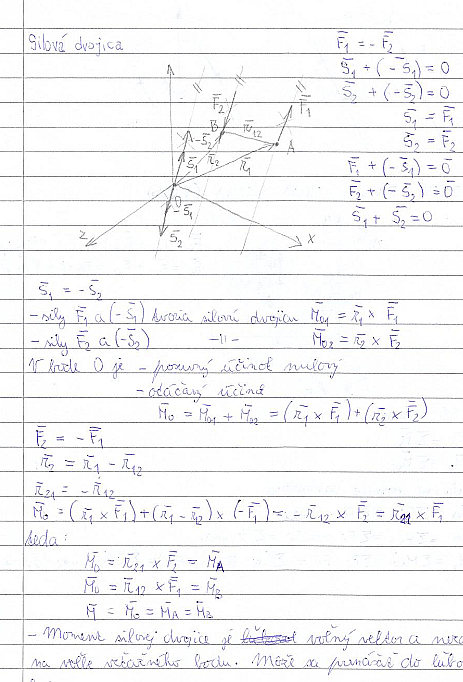 Silová dvojica
F̄₁ = - F̄₂
S̄₁ + (-S̄₁) = 0
S̄₂ + (-S̄₂) = 0
S̄₁ = F̄₁
S̄₂ = F̄₂
F̄₁ + (-S̄₁) = 0̄
F̄₂ + (-S̄₂) = 0̄
S̄₁ + S̄₂ = 0
F̄₂
F̄₁
B
r̄₁₂
A
-S̄₂
S̄₁
r̄₂
r̄₁
O
-S̄₁
S̄₂
z
x
S̄₁ = -S̄₂
- sily F̄₁ a (-S̄₁) tvoria silovú dvojicu M̄₀₁ = r̄₁ × F̄₁
- sily F̄₂ a (-S̄₂) -||- M̄₀₂ = r̄₂ × F̄₂
V bode O je - posuvný účinok nulový
- otáčavý účinok
M̄₀ = M̄₀₁ + M̄₀₂ = (r̄₁ × F̄₁) + (r̄₂ × F̄₂)
F̄₂ = - F̄₁
r̄₂ = r̄₁ - r̄₁₂
r̄₂₁ = - r̄₁₂
M̄₀ = (r̄₁ × F̄₁) + (r̄₁ - r̄₁₂) × (-F̄₁) = - r̄₁₂ × F̄₂ = r̄₂₁ × F̄₁
teda:
M̄₀ = r̄₂₁ × F̄₂ = M̄A
M̄₀ = r̄₁₂ × F̄₁ = M̄B
M̄ = M̄₀ = M̄A = M̄B
- Moment silovej dvojice je voľný vektor a
na voľbe vzťažného bodu. Môže sa premiestniť do